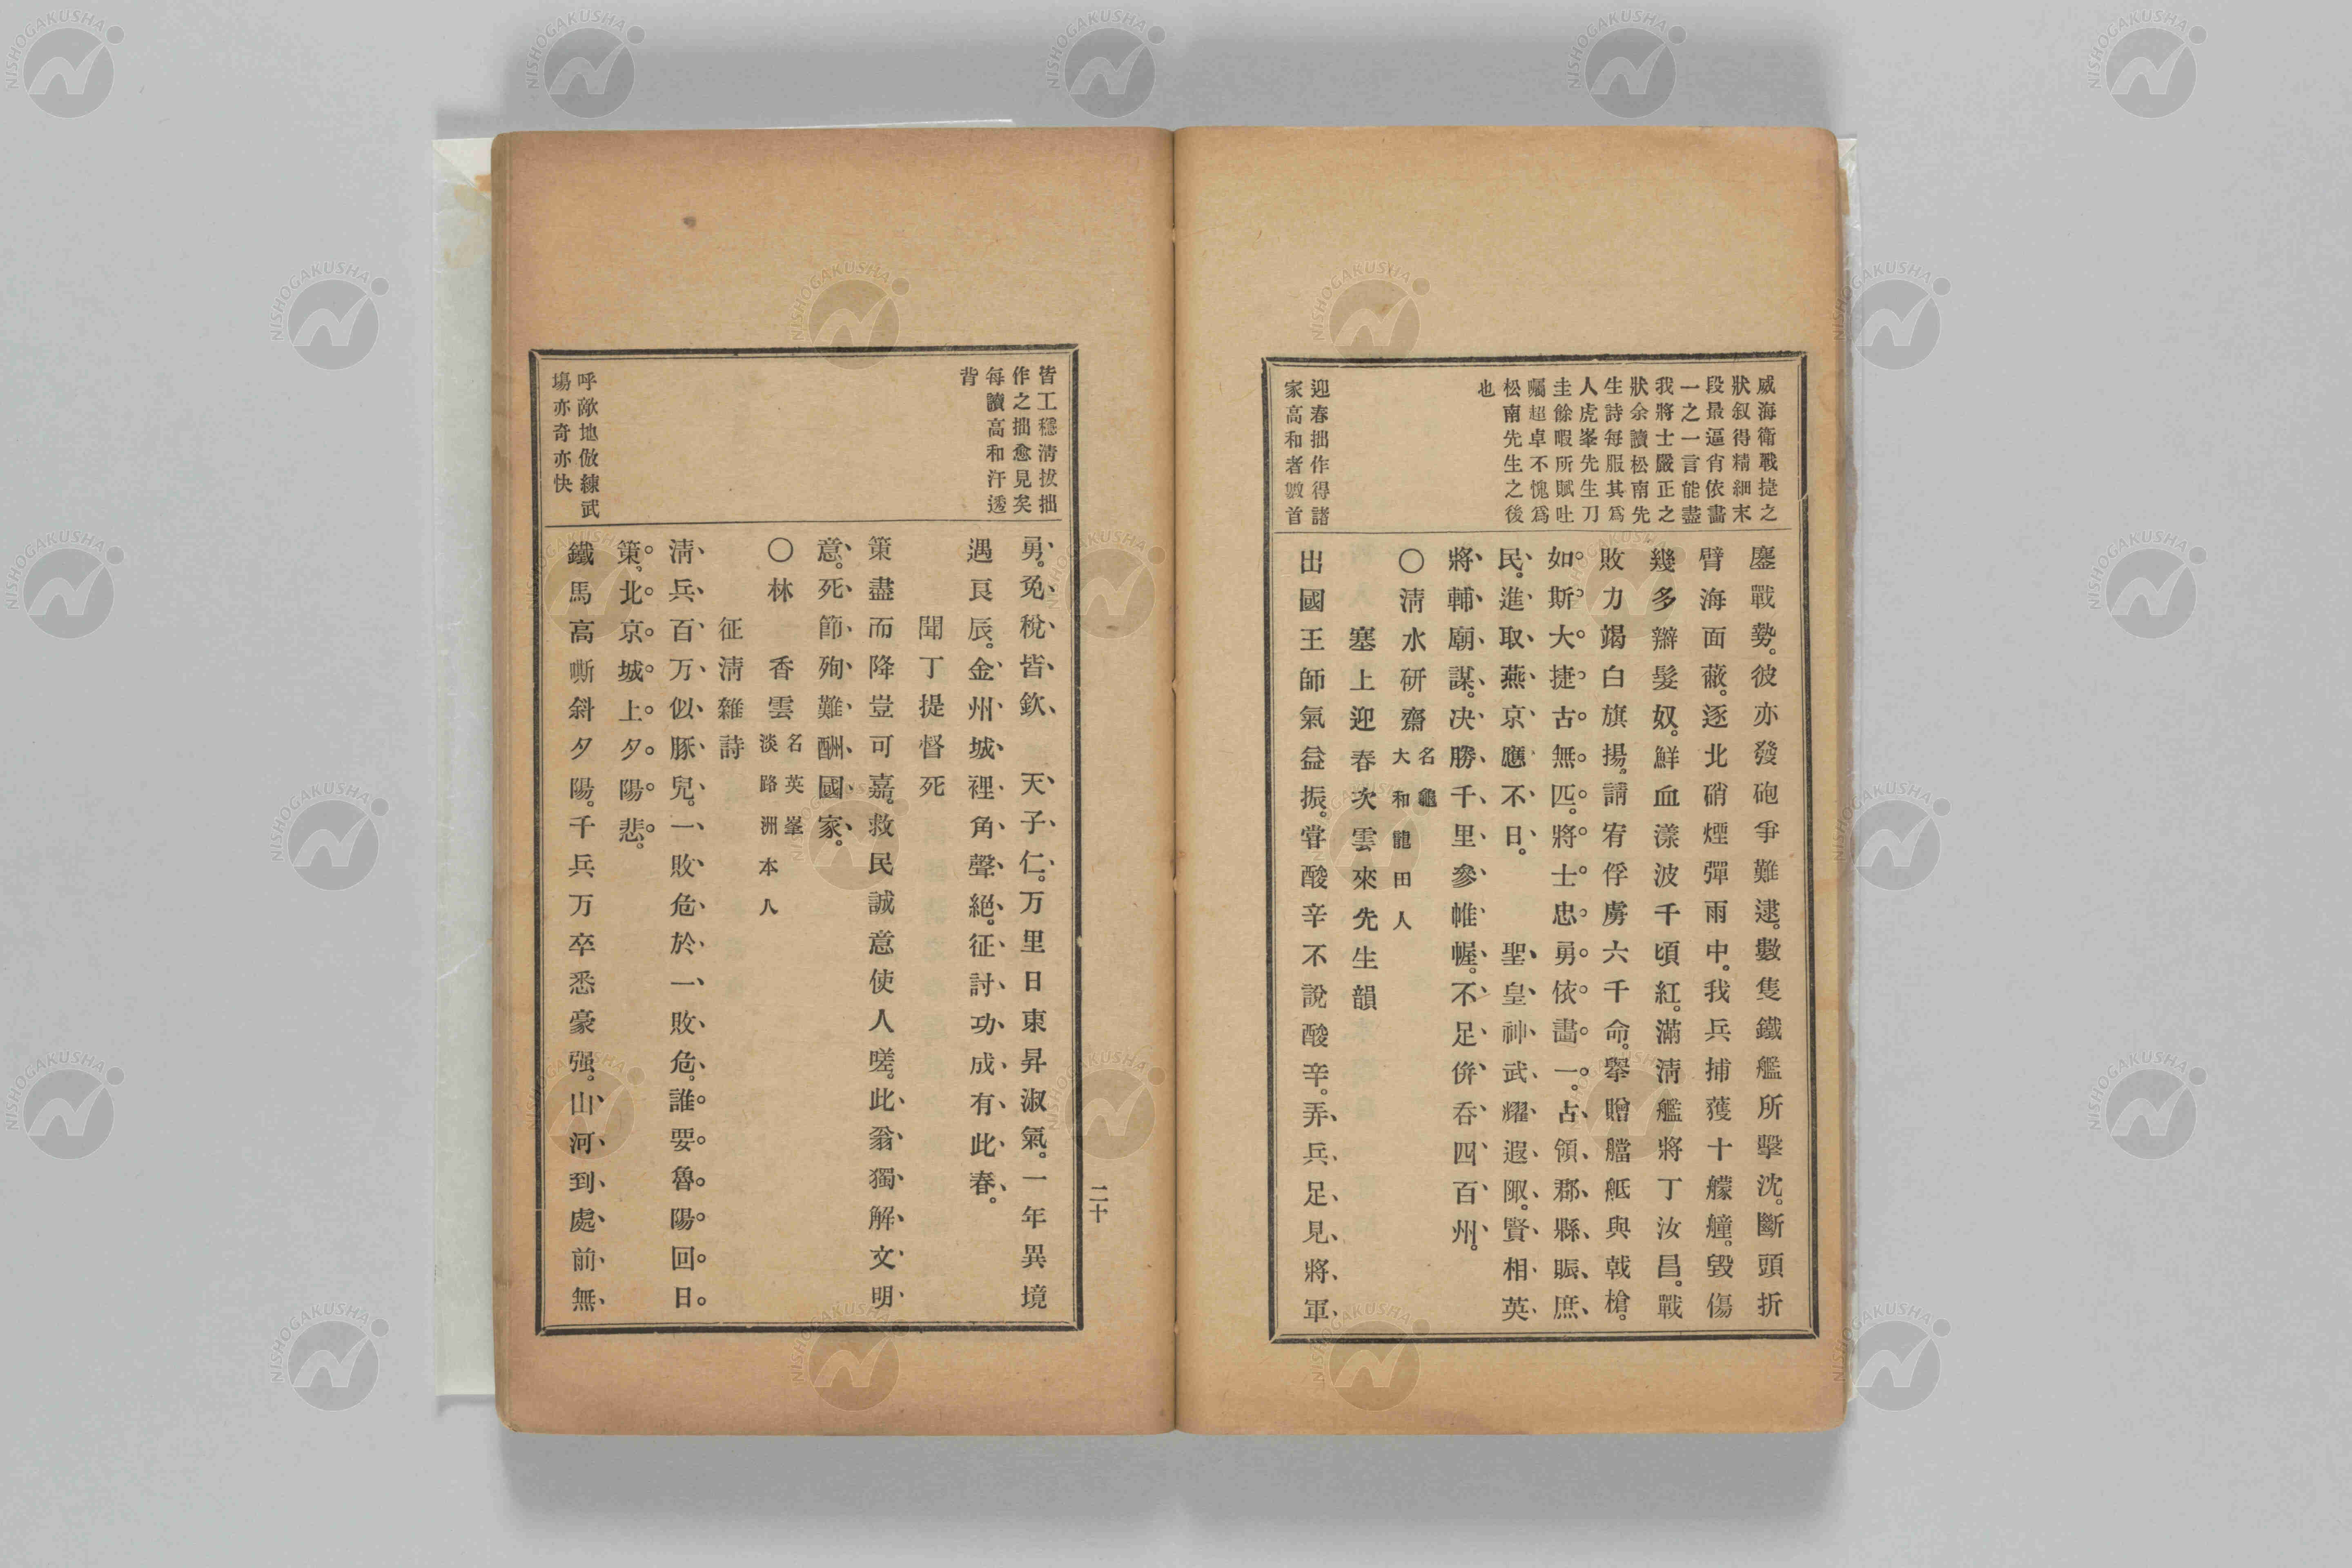 威海衛戰捷之
狀叙得精細末
段最逼肖依畵
一之一言能盡
我將士嚴正之
狀余讀松南先
生詩每服其爲
人虎峯先生刀
圭餘暇所賦吐
囑超卓不愧爲
松南先生之後
也
迎春拙作得諸
家高和者數首
鏖戰勢。彼亦發砲爭難逮。數隻鐵艦所擊沈。斷頭折
臂海面蔽。逐北硝煙彈雨中。我兵捕獲十艨艟。毀傷
幾多辮髮奴。鮮血漾波千頃紅。滿淸艦將丁汝昌。戰
敗力竭白旗揚。請宥俘虜六千命。擧贈艡舐與戟槍。
如斯大捷古無匹。將士忠勇依畵一。占領郡縣賑庶
民。進取燕京應不日。聖皇神武耀遐陬。賢相英
將輔廟謀。决勝千里參帷幄。不足併呑四百州。
〇淸水研齋 名龜 大和龍田人
塞上迎春次雲來先生韻
出國王師氣益振。甞酸辛不說酸辛。弄兵足見將軍
皆工穩淸拔拙
作之拙愈見矣
每讀高和汗透
背
呼敵地倣練武
塲亦奇亦快
勇。免稅皆欽天子仁。万里日東昇淑氣。一年異境
遇良辰。金州城裡角聲絕。征討功成有此春。
聞丁提督死
策盡而降豈可嘉。救民誠意使人嗟。此翁獨解文明
意。死節殉難酬國家。
〇林香雲 名英峯 淡路洲本人
征淸雜詩
淸兵百万似豚兒。一敗危於一敗危。誰要魯陽回日
策。北京城上夕陽悲。
鐵馬高嘶斜夕陽。千兵万卒悉豪强。山河到處前無
二十
NISHOGAKUSHA